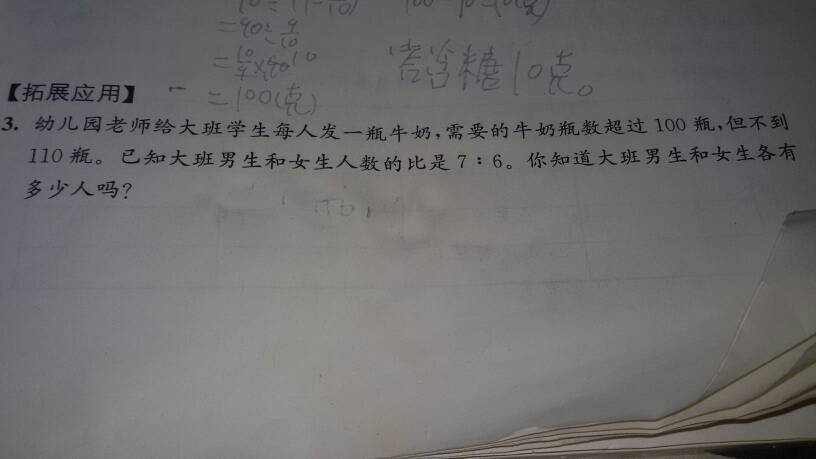 =90÷9/10
=10/9×90
=100(克)
答:含糖10克。
【拓展应用】
3. 幼儿园老师给大班学生每人发一瓶牛奶,需要的牛奶瓶数超过 100 瓶,但不到
110 瓶。已知大班男生和女生人数的比是 7∶6。你知道大班男生和女生各有
多少人吗?